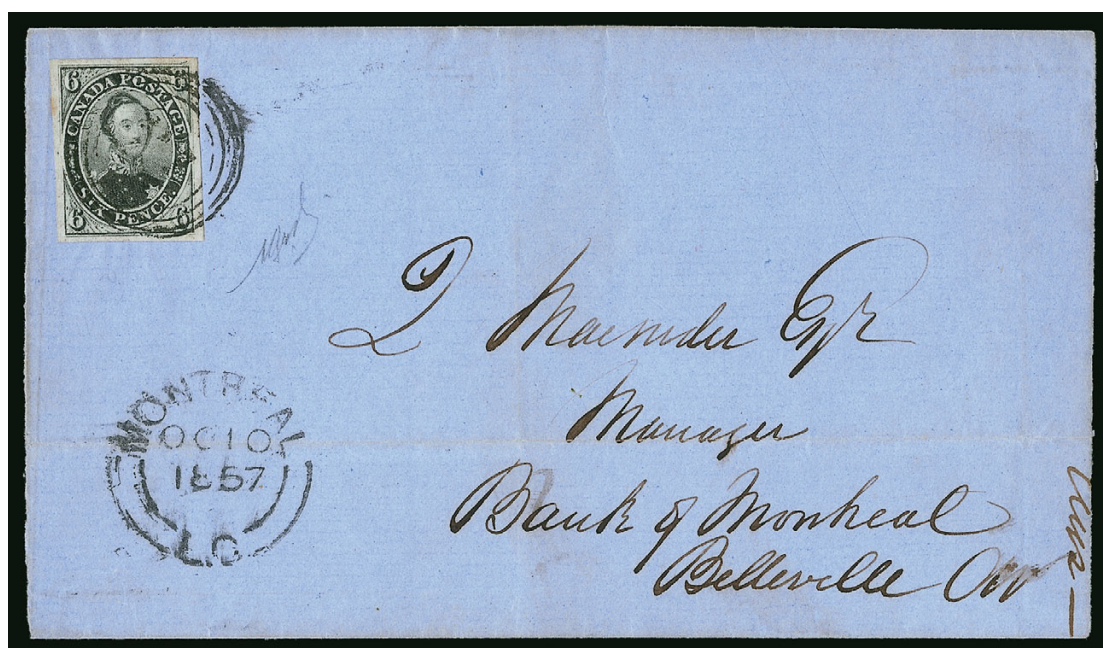 6 6
CANADA POSTAGE
SIX PENCE.
6 6
MONTREAL
OC 10
1857
L.C
Manager
Bank of Montreal
Belleville